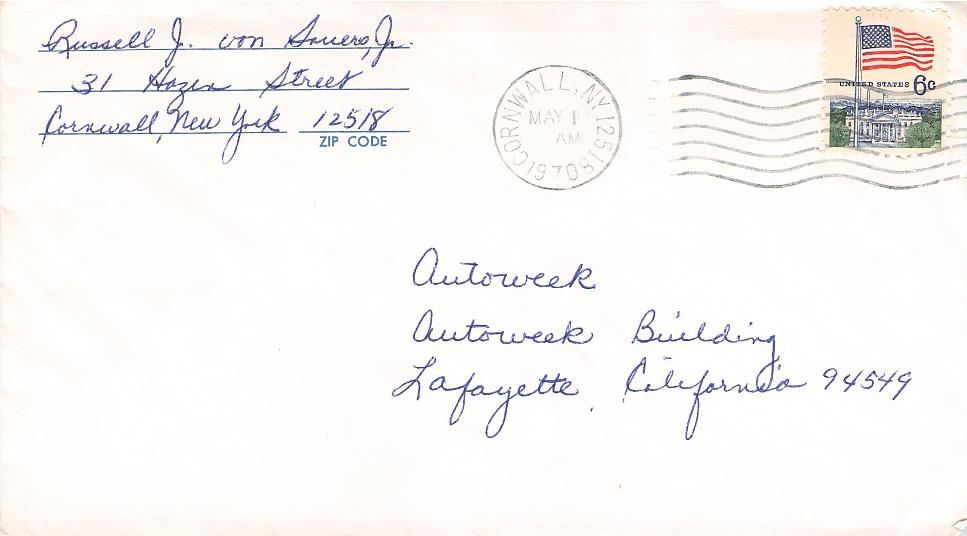 Russell J. von Sauers, Jr.
31 Hazen Street
Cornwall, New York 12518
ZIP CODE
CORNWALL, NY 12518
MAY 1
AM
1970
UNITED STATES 6c
Autoweek
Autoweek Building
Lafayette, California 94549